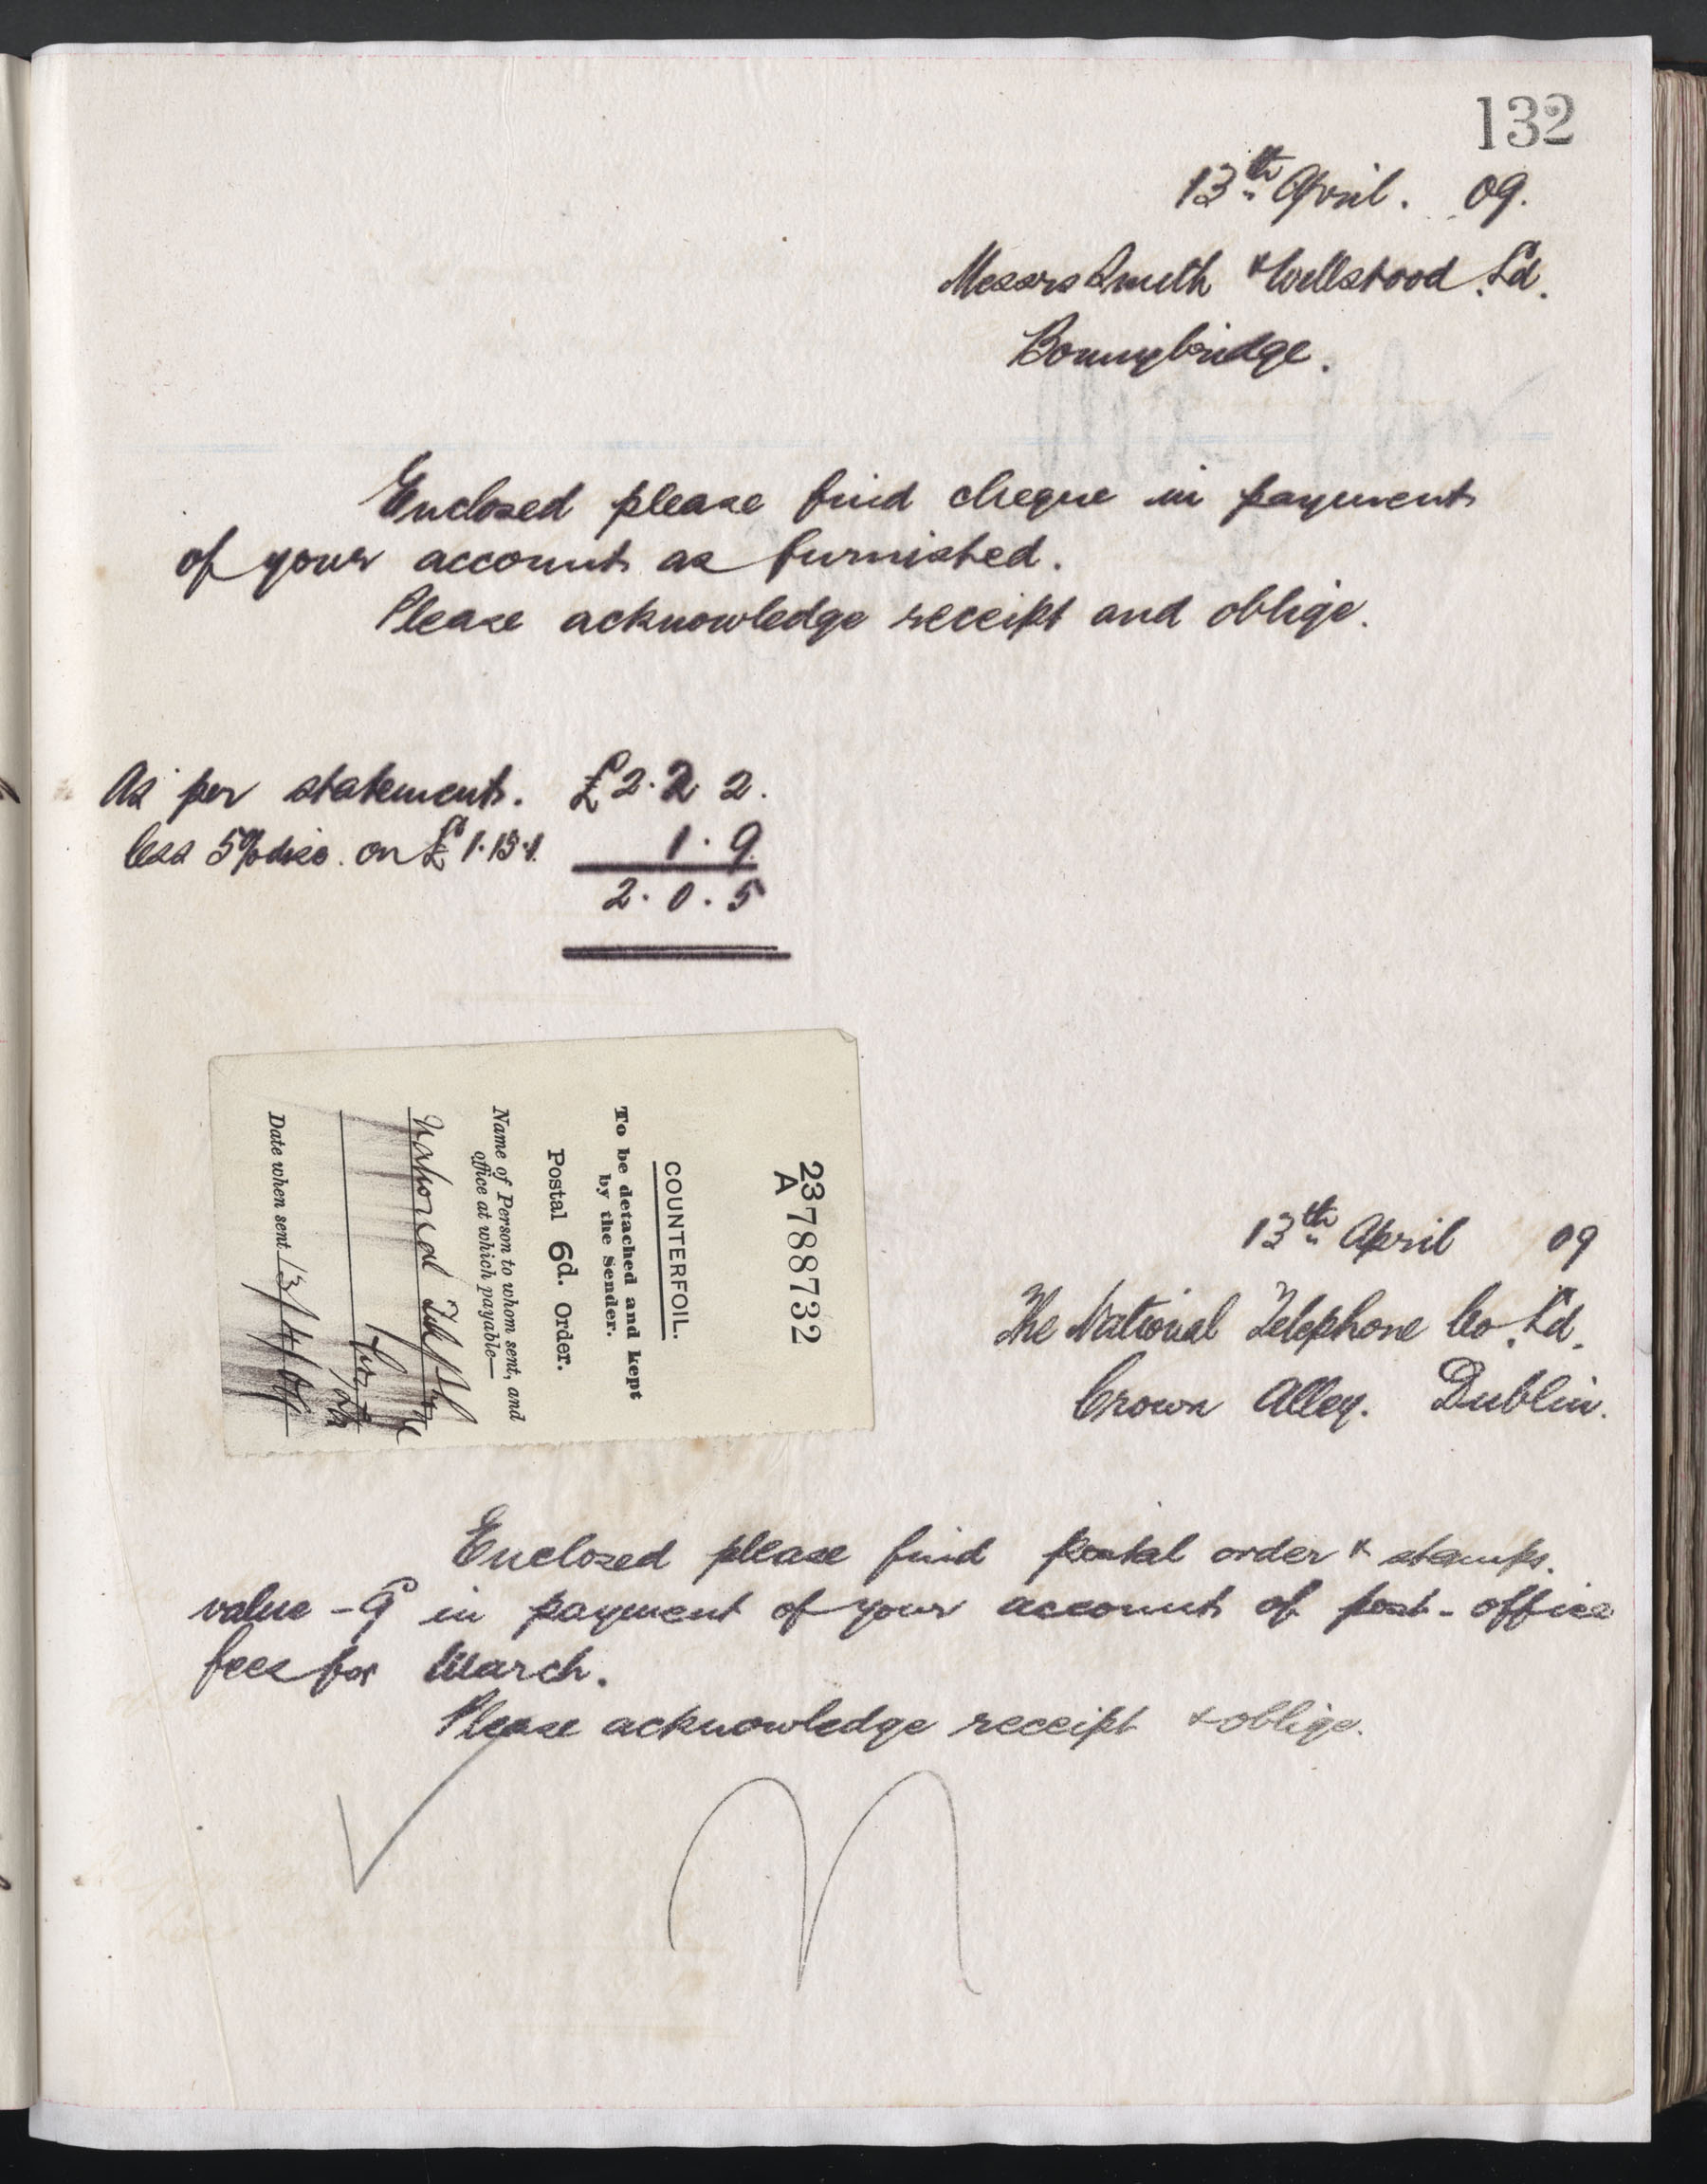 132
13th April. 09.
Messrs Smith & Wellstood. Ld.
Bonnybridge.
Enclosed please find cheque in payment
of your account as furnished.
Please acknowledge receipt and oblige.
As per statement. £2.2 2.
less 5% disc. on £1.15.1. 1.9.
2.0.5
23 788732
A
COUNTERFOIL.
To be detached and kept
by the Sender.
Postal 6d. Order.
Name of Person to whom sent, and
office at which payable—
National Telephone
Date when sent 13/4/09
13th April 09
The National Telephone Co. Ld.
Crown Alley. Dublin.
Enclosed please find postal order & stamps.
value -9 in payment of your account of post-office
fees for March.
Please acknowledge receipt & oblige.